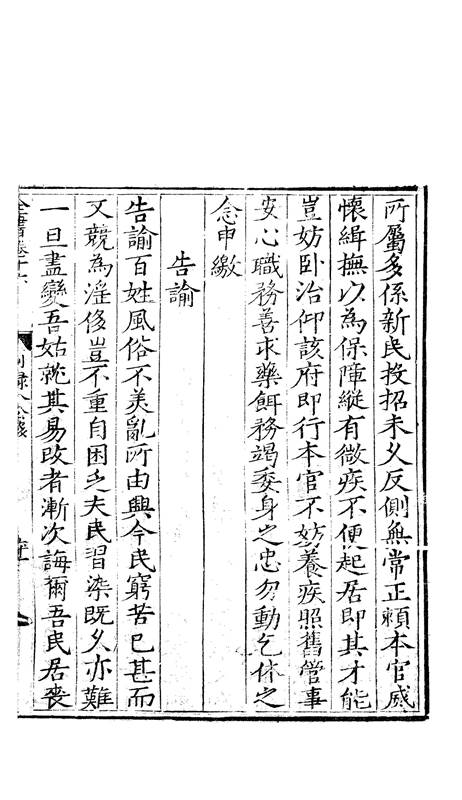 所屬多係新民投招未久反側無常正賴本官威
懷緝撫以為保障縱有微疾不便起居即其才能
豈妨卧治仰該府即行本官不妨養疾照舊管事
安心職務善求藥餌務竭委身之忠勿動乞休之
念申繳
告諭
告諭百姓風俗不羙亂所由興今民窮苦已甚而
又競為淫侈豈不重自困乏夫民習染既久亦難
一旦盡變吾姑就其易改者漸次誨爾吾民居喪
全書卷十六
別録八